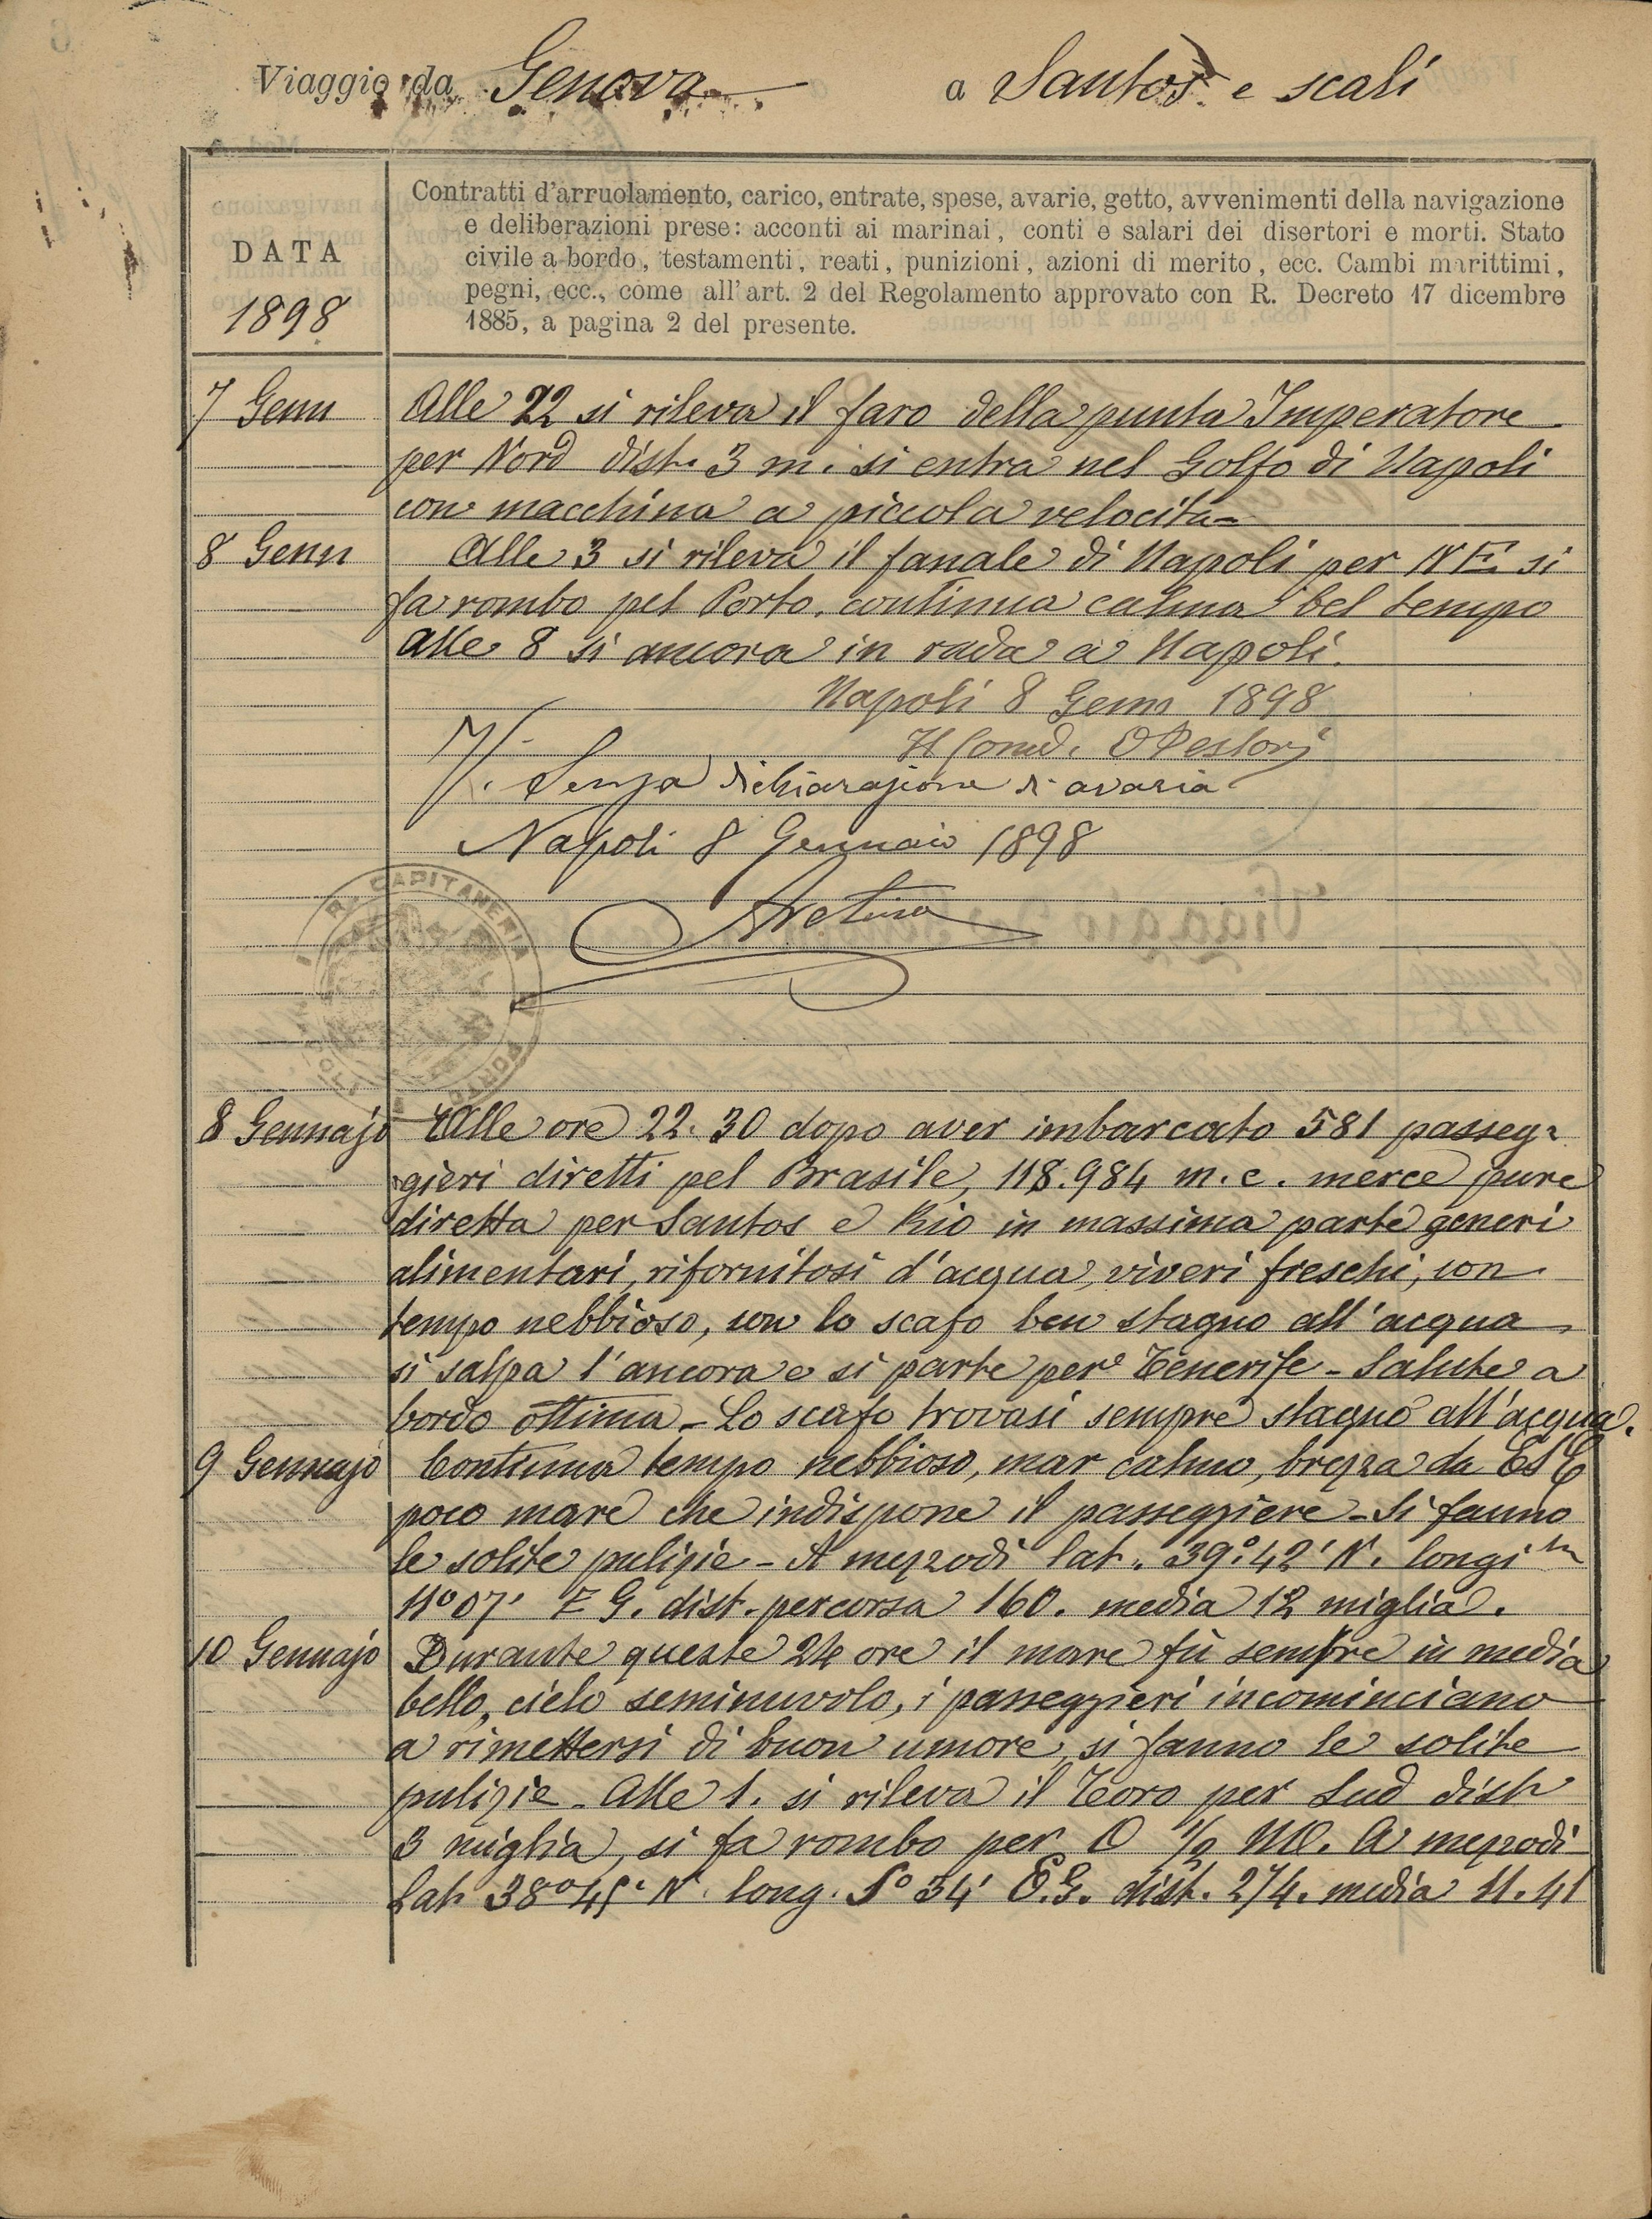 Viaggio da Genova a Santos e scali
DATA
1898
Contratti d'arruolamento, carico, entrate, spese, avarie, getto, avvenimenti della navigazione
e deliberazioni prese: acconti ai marinai, conti e salari dei disertori e morti. Stato
civile a bordo, testamenti, reati, punizioni, azioni di merito, ecc. Cambi marittimi,
pegni, ecc., come all'art. 2 del Regolamento approvato con R. Decreto 17 dicembre
1885, a pagina 2 del presente.
7 Genn Alle 22 si rileva il faro della punta Imperatore
per Nord dist. 3 m. si entra nel Golfo di Napoli
con macchina a piccola velocita
8 Genn Alle 3 si rileva il fanale di Napoli per NE si
fa rombo pel Porto, continua calma bel tempo
alle 8 si ancora in rada a Napoli.
Napoli 8 Genn 1898
Il Comd.
Senza dichiarazione di avaria
Napoli 8 Gennaio 1898
R. CAPITANERIA
PORTO
8 Gennajo Alle ore 22.30 dopo aver imbarcato 581 passeg-
gieri diretti pel Brasile, 118.984 m.c. merce pure
diretta per Santos e Rio in massima parte generi
alimentari, rifornitosi d'acqua, viveri freschi, con
tempo nebbioso, con lo scafo ben stagno all'acqua
si salpa l'ancora e si parte per Tenerife - Salute a
bordo ottima - Lo scafo trovasi sempre stagno all'acqua.
9 Gennajo Continua tempo nebbioso, mar calmo, brezza da ESE
poco mare che indispone il passeggiere - Si fanno
le solite pulizie - A mezzodi lat. 39° 42' N. longi
11° 07' E G. dist. percorsa 160. media 12 miglia.
10 Gennajo Durante queste 24 ore il mare fù sempre in media
bello, cielo seminuvolo, i passeggieri incominciano
a rimettersi di buon umore, si fanno le solite
pulizie - Alle 1. si rileva il Toro per Sud dist
3 miglia, si fa rombo per O 1/2 A mezzodi
Lat 38° N. long. 5° 34' E.G. dist. 274. media 11.41